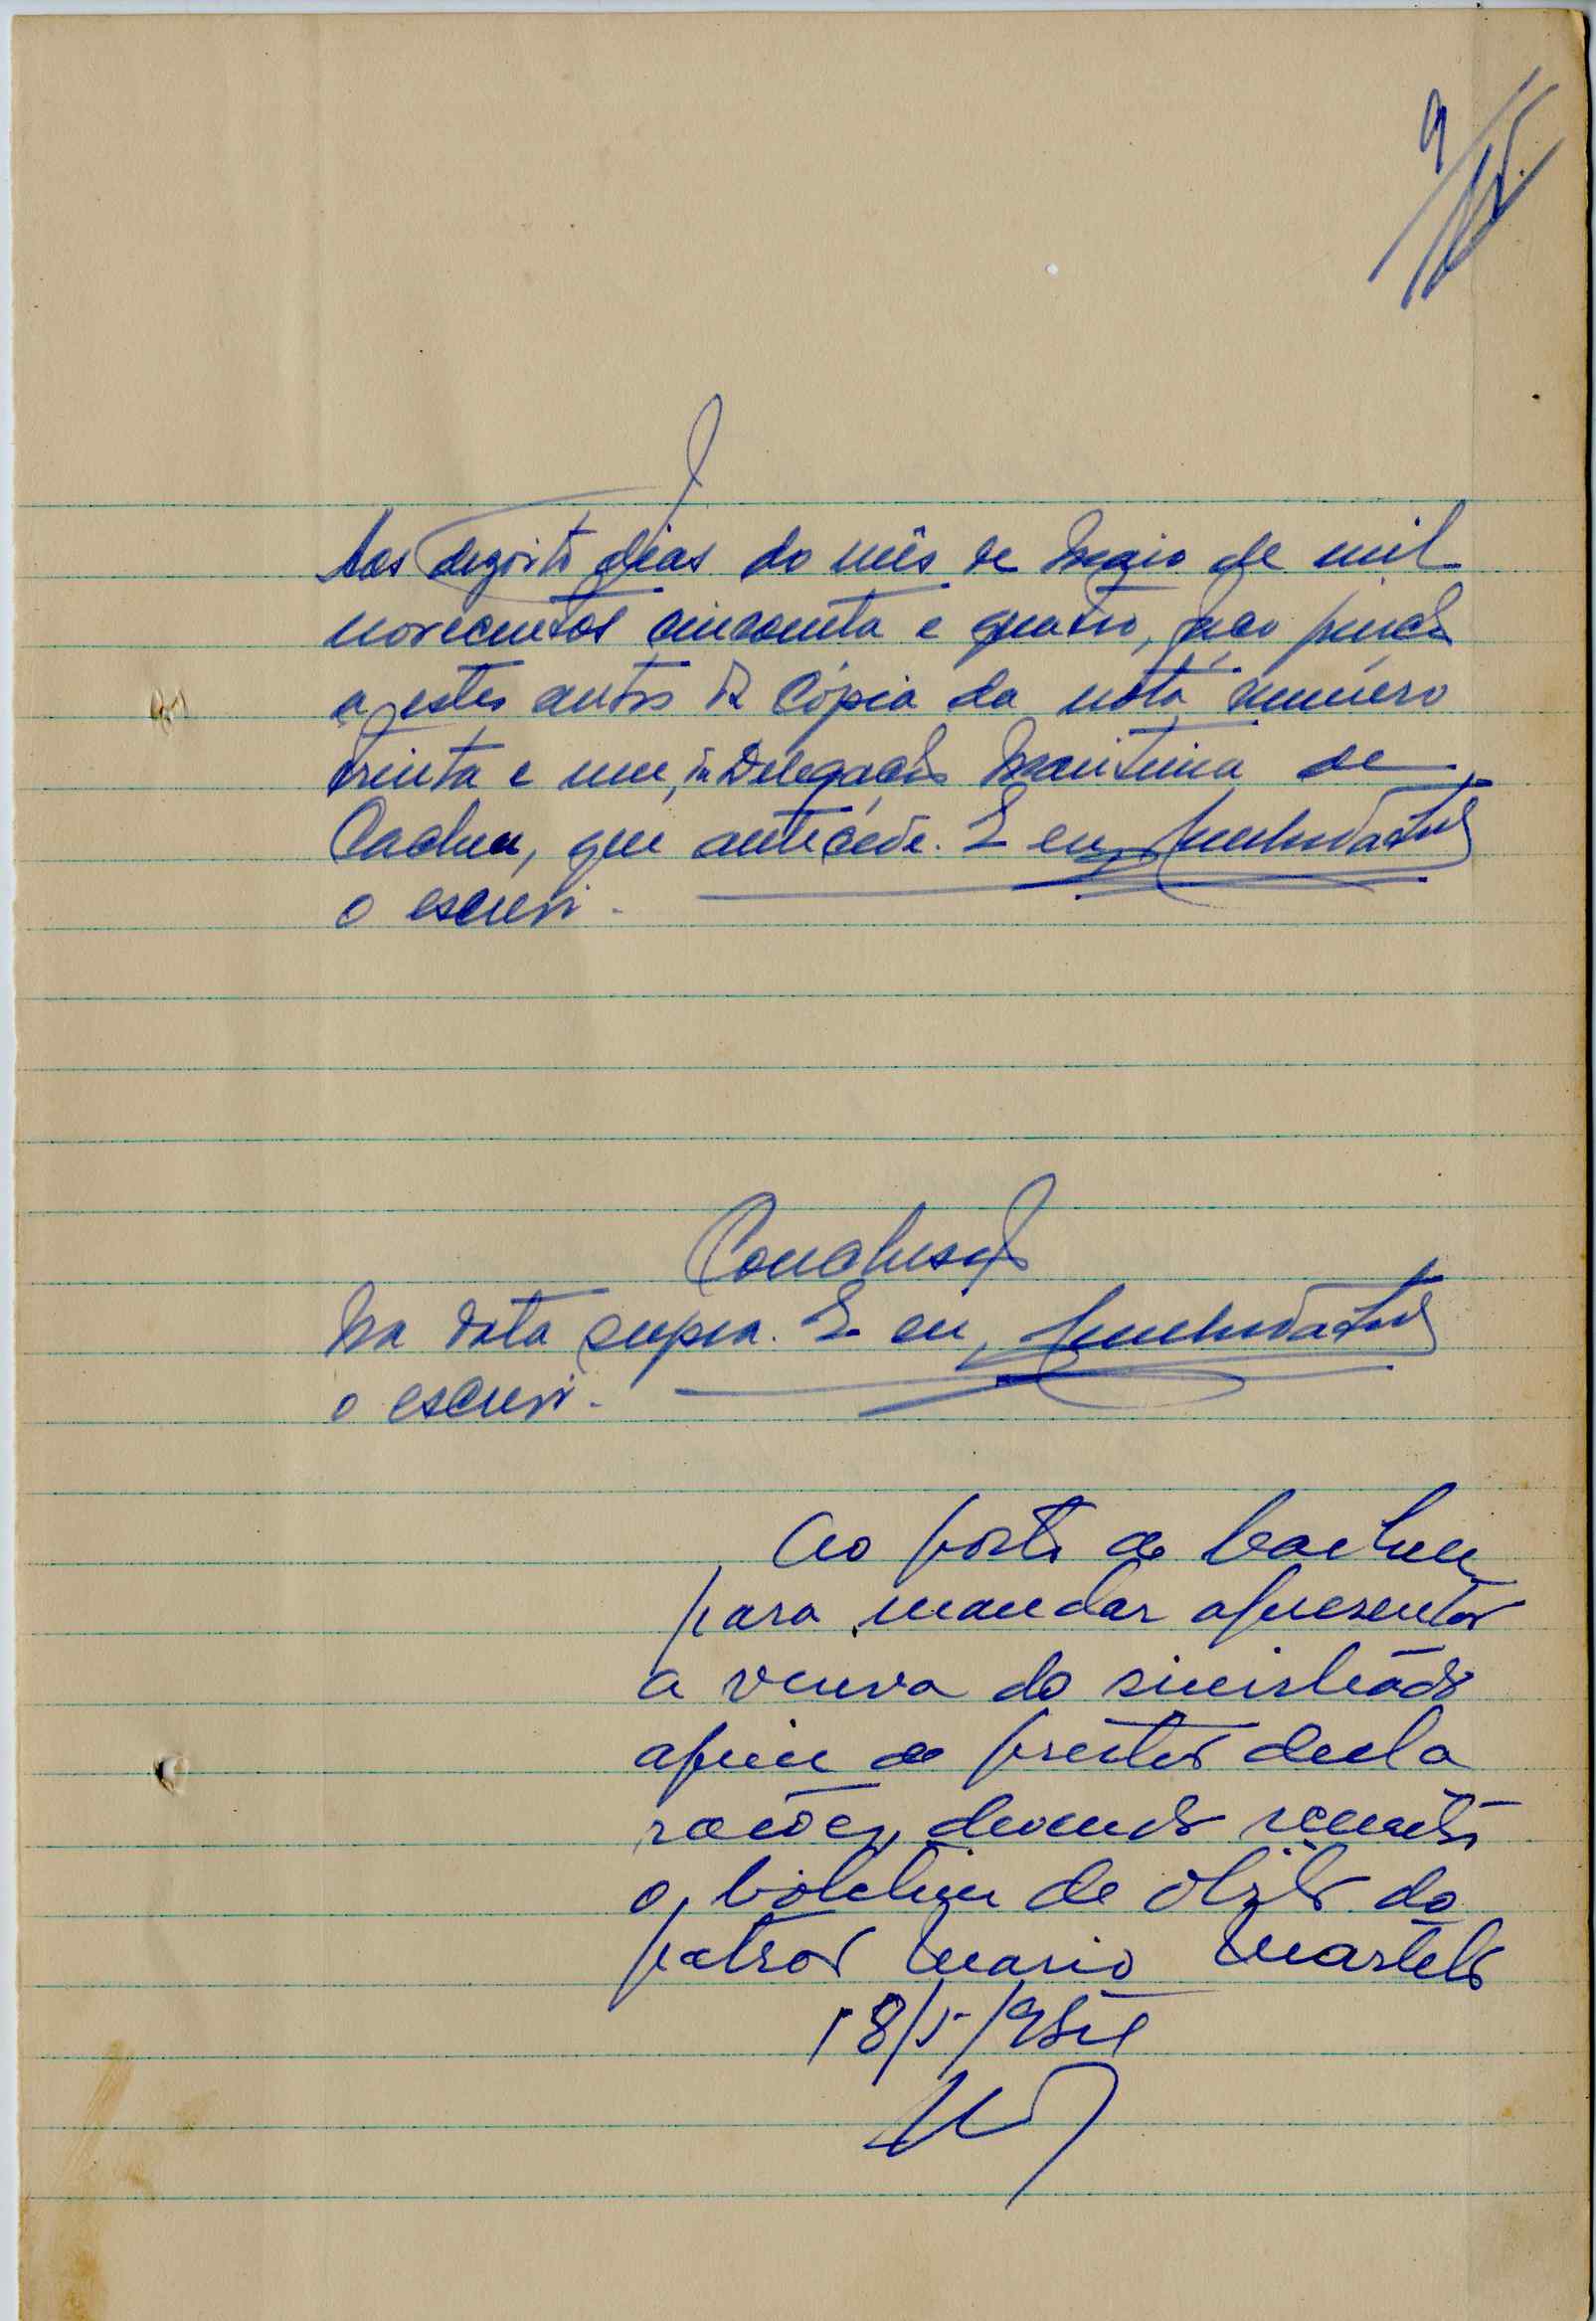 9
Aos dezoito dias do mês de Maio de mil
novecentos cincoenta e quatro, faço junção
a estes autos da cópia da nota número
trinta e um, da Delegação Marítima de
Cacheu, que antecede. E eu,
o escrevi.
Conclusão
Na data supra. E eu,
o escrevi.
Ao posto de Cacheu
para mandar apresentar
a viuva do sinistrado
afim de prestar decla
rações, devendo remeter
o boletim de obito do
patrão Mario Martels
18/5/954